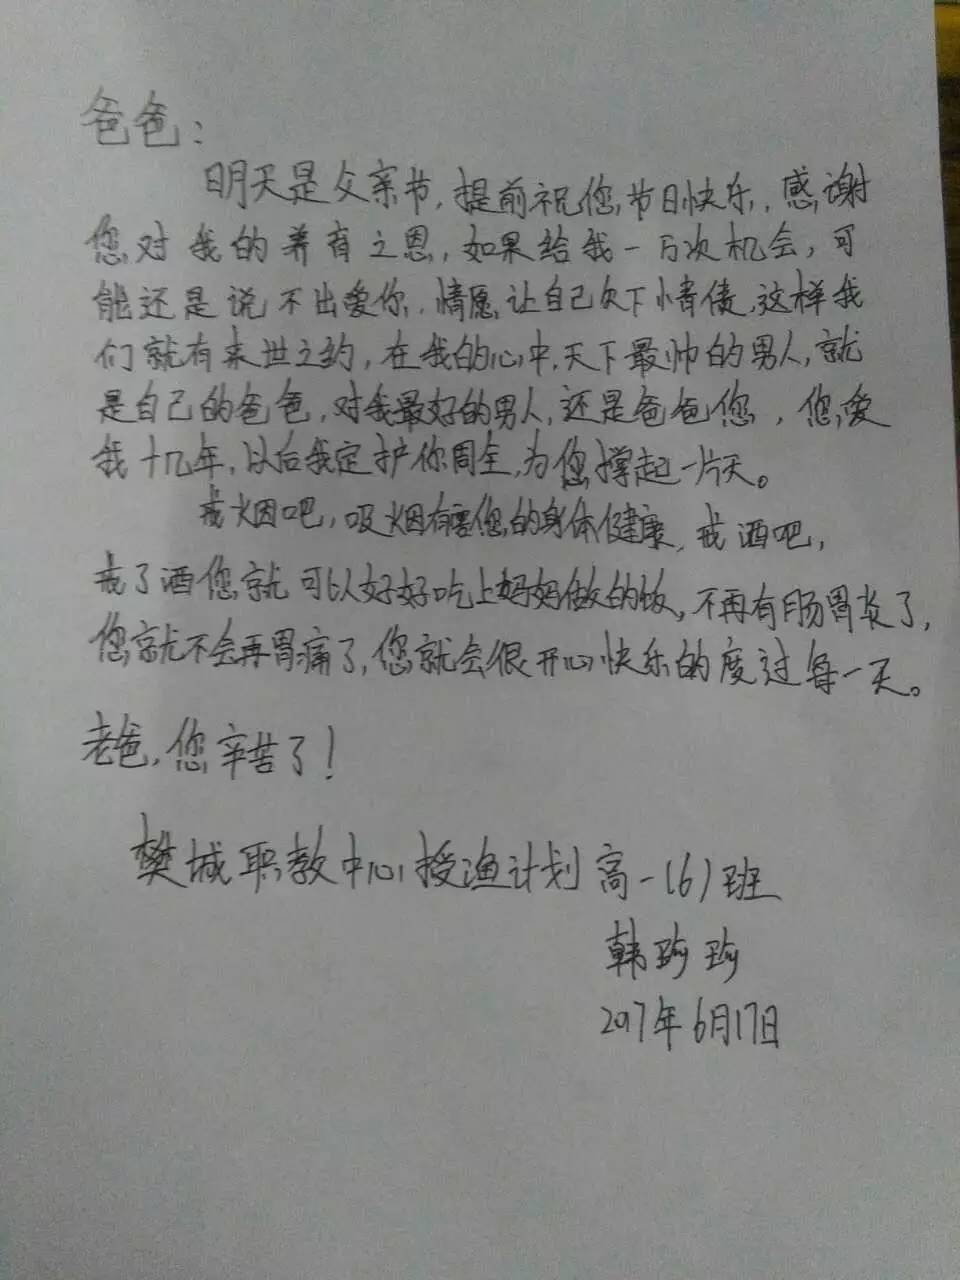 爸爸：
明天是父亲节，提前祝您节日快乐，感谢
您对我的养育之恩，如果给我一万次机会，可
能还是说不出爱你，情愿让自己欠下情债，这样我
们就有来世之约，在我的心中，天下最帅的男人，就
是自己的爸爸，对我最好的男人，还是爸爸您，您爱
我十几年，以后我定护你周全，为您撑起一片天。
戒烟吧，吸烟有害您的身体健康，戒酒吧，
戒了酒您就可以好好吃上妈妈做的饭，不再有肠胃炎了，
您就不会再胃痛了，您就会很开心快乐的度过每一天。
老爸，您辛苦了！
樊城职教中心授渔计划高一(6)班
韩珍珍
2017年6月17日